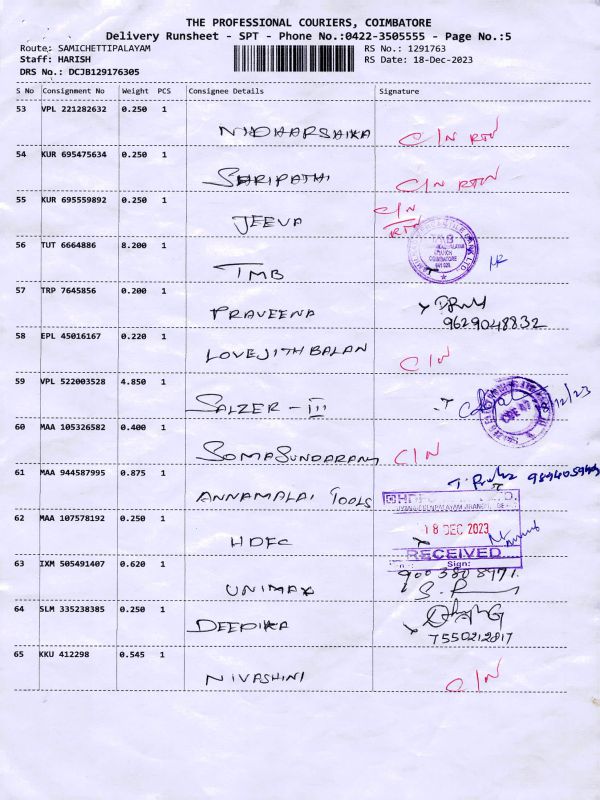 THE PROFESSIONAL COURIERS, COIMBATORE
Delivery Runsheet - SPT - Phone No.:0422-3505555 - Page No.:5
Route: SAMICHETTIPALAYAM RS No.: 1291763
Staff: HARISH RS Date: 18-Dec-2023
DRS No.: DCJB129176305
S No Consignment No Weight PCS Consignee Details Signature
53 VPL 221282632 0.250 1
NIDHARSHIKA C/N RTN
54 KUR 695475634 0.250 1
SHRIPATHI C/N RTN
55 KUR 695559892 0.250 1 C/N
JEEVA RTN
56 TUT 6664886 8.200 1
TMB
57 TRP 7645856 0.200 1
PRAVEENA
9629048832
58 EPL 45016167 0.220 1
LOVEJITH BALAN C/N
59 VPL 522003528 4.850 1
SALZER - III
60 MAA 105326582 0.400 1
SOMASUNDARAM C/N
61 MAA 944587995 0.875 1
ANNAMALAI TOOLS
62 MAA 107578192 0.250 1
18 DEC 2023
HDFC
RECEIVED
63 IXM 505491407 0.620 1 Sign:
9003808971
UNIMAX
64 SLM 335238385 0.250 1
DEEPIKA
7550212817
65 KKU 412298 0.545 1
NIVASHINI C/N